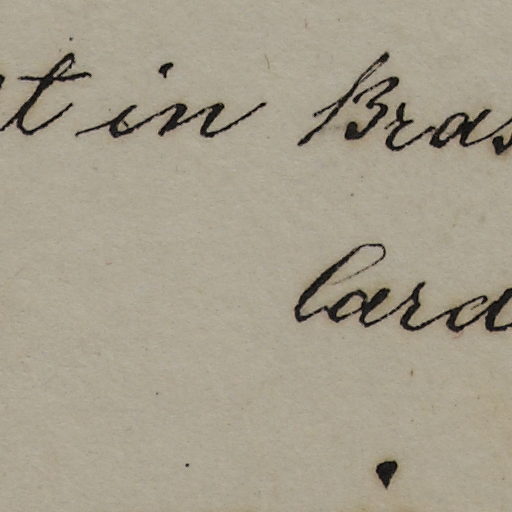 t in Bras
Card